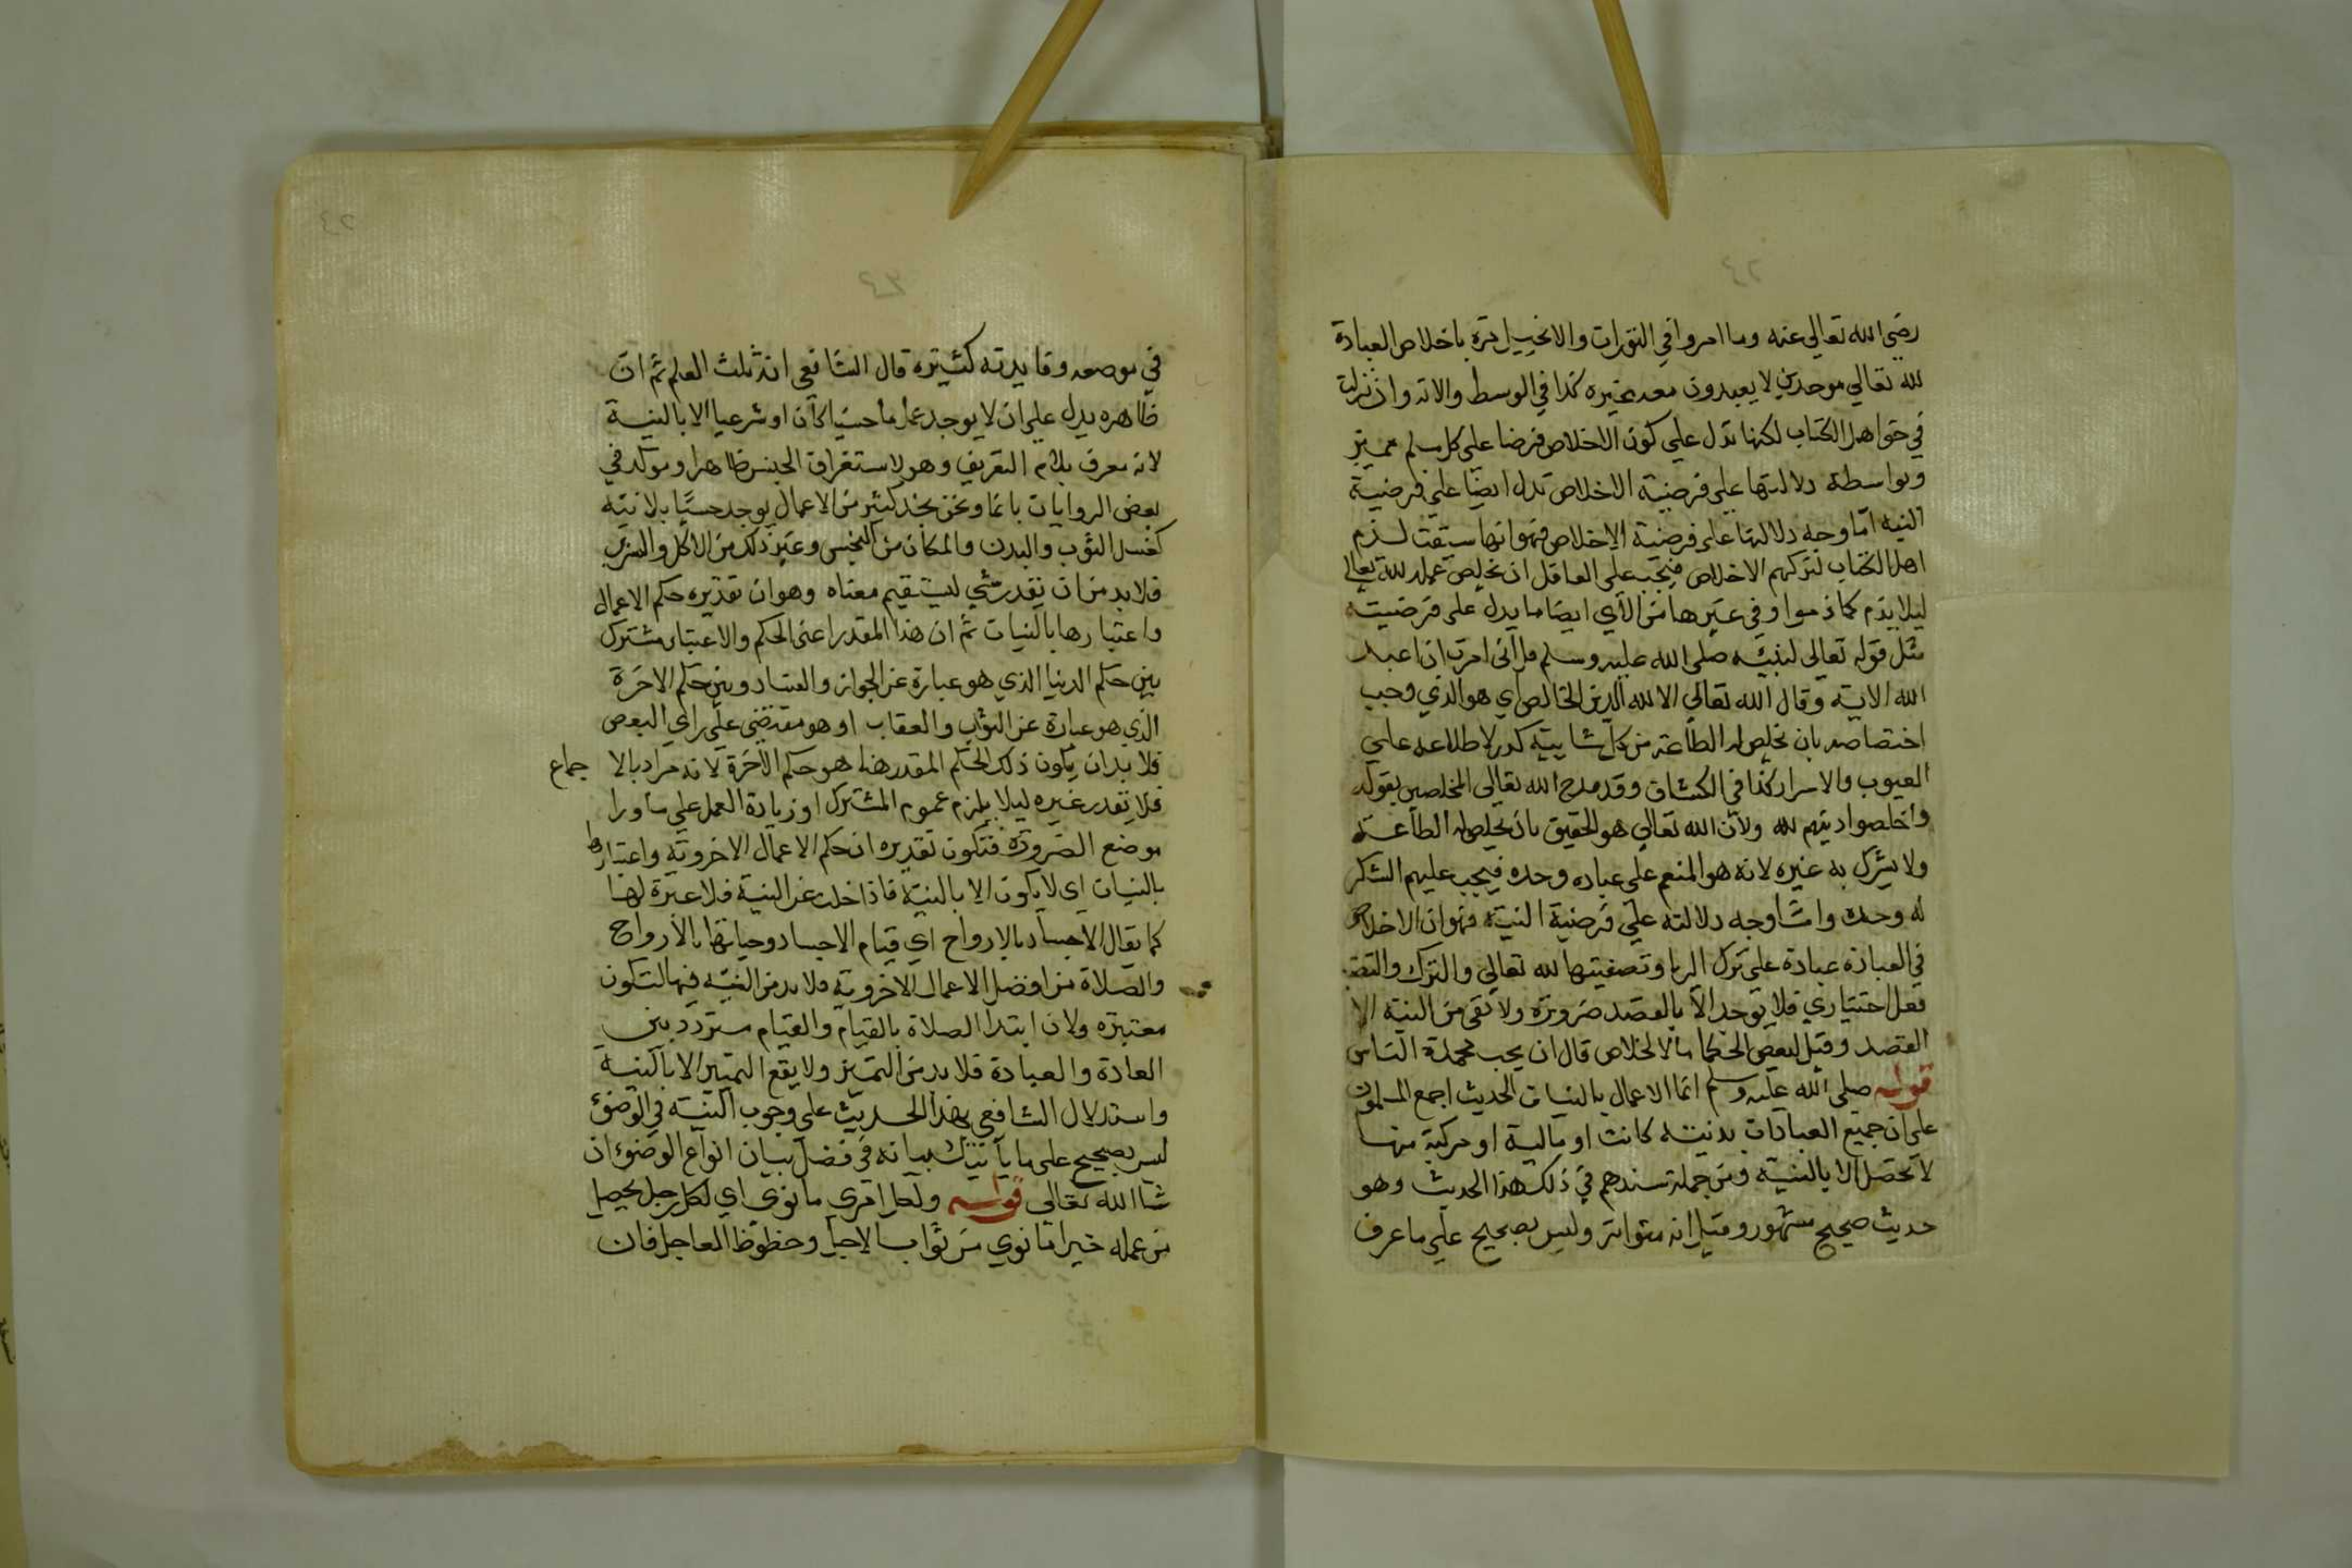 رضي الله تعالى عنه وما امروا في التورات والانجيل باخلاص العبادة
لله تعالي موحدين لا يعبدون معه غيره كذا في الوسط والاته وان نزلت
في حق اهل الكتاب لكنها تدل علي كون الاخلاص فرضا على كل مسلم مميز
وبواسطة دلالتها علي فرضية الاخلاص تدل ايضا علي فرضية
النيه اما وجه دلالتها على فرضية الاخلاص فهو انها سيقت لذم
اهل الكتاب لتركهم الاخلاص فيجب على العاقل ان يخلص عمله لله تعالى
ليلا يذم كما ذموا وفي غيرها من الآي ايضا ما يدل على فرضيته
مثل قوله تعالى لنبيه صلى الله عليه وسلم قل اني امرت ان اعبد
الله الاية وقال الله تعالي الا لله الدين الخالص اي هو الذي وجب
اختصاصه بان يخلص له الطاعة من كل شايبة كدر لاطلاعه علي
الغيوب والاسرار كذا في الكشاف وقد مدح الله تعالى المخلصين بقوله
واخلصوا دينهم لله ولان الله تعالي هو الحقيق بان يخلص له الطاعة
ولا يشرك به غيره لانه هو المنعم على عباده وحده فيجب عليهم الشكر
له وحده واما وجه دلالته علي فرضية النية فهو ان الاخلاص
في العبادة عبادة علي ترك الريا وتصفيتها لله تعالي والترك والتصفية
فعل اختياري فلا يوجد الا بالقصد ضرورة ولا نعني من النية الا
القصد وقيل لبعض الحكما ما الاخلاص قال ان يحب محمدة الناس
قوله صلى الله عليه وسلم انما الاعمال بالنيات الحديث اجمع المسلمون
على ان جميع العبادات بدنية كانت او مالية او مركبة منها
لا تحصل الا بالنية ومن جملة سندهم في ذلك هذا الحديث وهو
حديث صحيح مشهور وقيل انه متواتر وليس بصحيح علي ما عرف
في موضعه وفايدته كثيرة قال الشافعي انه ثلث العلم ثم ان
ظاهره يدل علي ان لا يوجد عمل ما حسيا كان او شرعيا الا بالنية
لانه معرف بلام التعريف وهو لاستغراق الجنس ظاهرا وموكد في
بعض الروايات بانما ونحن نجد كثير من الاعمال يوجد حسيا بلا نية
كغسل الثوب والبدن والمكان من النجس وغير ذلك من الاكل والشرب
فلا بد من ان يقدر شي ليستقيم معناه وهو ان تقديره حكم الاعمال
واعتبارها بالنيات ثم ان هذا المقدر اعني الحكم والاعتبار مشترك
بين حكم الدنيا الذي هو عبارة عن الجواز والفساد وبين حكم الاخرة
الذي هو عبارة عن الثواب والعقاب او هو مقتضى علي راي البعض
فلا بد ان يكون ذلك الحكم المقدر هنا هو حكم الآخرة لانه مراد بالا جماع
فلا يقدر غيره ليلا يلزم عموم المشترك او زيادة العمل علي ما ورا
موضع الضرورة فتكون تقديره ان حكم الاعمال الاخروية واعتبارها
بالنيات اي لا يكون الا بالنية فاذا خلت عن النية فلا عبرة لها
كما يقال الاجساد بالارواح اي قيام الاجساد وحياتها بالارواح
والصلاة من افضل الاعمال الاخروية فلا بد من النية فيها لتكون
معتبرة ولان ابتدا الصلاة بالقيام والقيام متردد بين
العادة والعبادة فلا بد من التميز ولا يقع التميز الا بالنية
واستدلال الشافعي بهذا الحديث علي وجوب النية في الوضؤ
ليس بصحيح على ما يأتيك بيانه في فصل بيان انواع الوضؤ ان
شا الله تعالى قوله ولكل امري ما نوى اي لكل رجل يحصل
من عمله خير ما نوي من ثواب الاجل وحظوظ العاجل فان